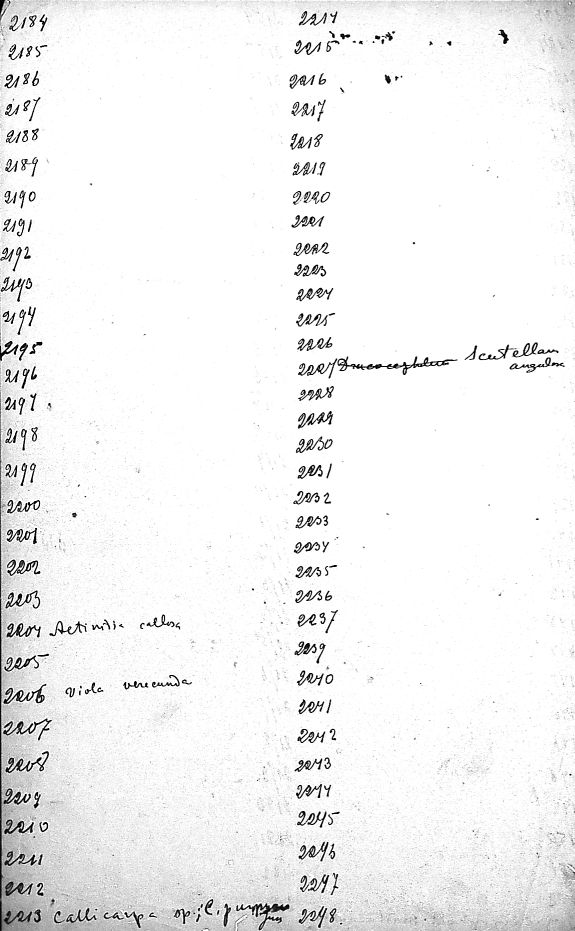 2184
2185
2186
2187
2188
2189
2190
2191
2192
2193
2194
2195
2196
2197
2198
2199
2200
2201
2202
2203
2204 Actinidia callosa
2205
2206 Viola verecunda
2207
2208
2209
2210
2211
2212
2213 Callicarpa sp; C.
2214
2215
2216
2217
2218
2219
2220
2221
2222
2223
2224
2225
2226
2227 Scutellaria
angulosa
2228
2229
2230
2231
2232
2233
2234
2235
2236
2237
2239
2240
2241
2242
2243
2244
2245
2246
2247
2248.